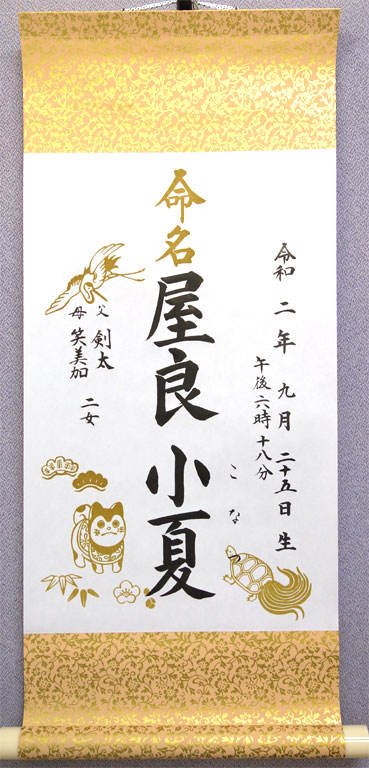 令和二年九月二十五日生
午後六時十八分
命名
屋良小夏
こな
父剣太
母笑美加
二女